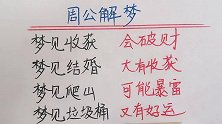 周公解梦
梦见收获 会破财
梦见结婚 大有收获
梦见爬山 可能暴雷
梦见垃圾桶 又有好运